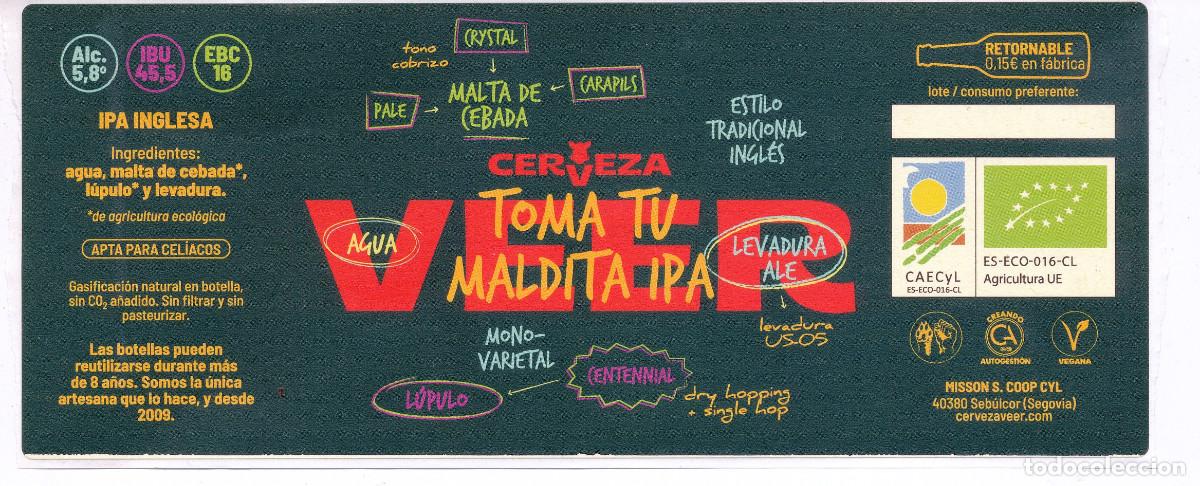 Alc.
5,8º
IBU
45,5
EBC
16
IPA INGLESA
Ingredientes:
agua, malta de cebada*,
lúpulo* y levadura.
*de agricultura ecológica
APTA PARA CELÍACOS
Gasificación natural en botella,
sin CO2 añadido. Sin filtrar y sin
pasteurizar.
Las botellas pueden
reutilizarse durante más
de 8 años. Somos la única
artesana que lo hace, y desde
2009.
tono
cobrizo
CRYSTAL
PALE
MALTA DE
CEBADA
CARAPILS
ESTILO
TRADICIONAL
INGLÉS
CERVEZA
VEER
TOMA TU
MALDITA IPA
AGUA
LEVADURA
ALE
levadura
US-05
MONO-
VARIETAL
LÚPULO
CENTENNIAL
dry hopping
+ single hop
RETORNABLE
0,15€ en fábrica
lote / consumo preferente:
CAECyL
ES-ECO-016-CL
ES-ECO-016-CL
Agricultura UE
CREANDO
CA
AUTOGESTIÓN
VEGANA
MISSON S. COOP CYL
40380 Sebúlcor (Segovia)
cervezaveer.com
todocoleccion